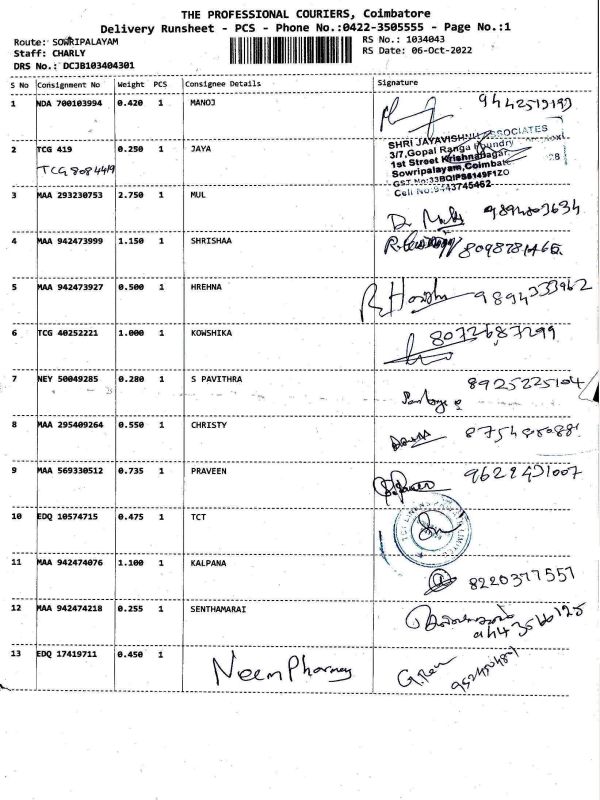 THE PROFESSIONAL COURIERS, Coimbatore
Delivery Runsheet - PCS - Phone No.:0422-3505555 - Page No.:1
Route: SOWRIPALAYAM
Staff: CHARLY
DRS No.: DCJB103404301
RS No.: 1034043
RS Date: 06-Oct-2022
S No Consignment No Weight PCS Consignee Details Signature
1 NDA 700103994 0.420 1 MANOJ
2 TCG 419 0.250 1 JAYA
TCG8084419
SHRI JAYAVISHNU ASSOCIATES
3/7,Gopal Ranga Foundry
1st Street Krishnanagar,
Sowripalayam,Coimbatore 28
GST No:33BQIPS6149F1ZO
Cell No:9443745462
3 MAA 293230753 2.750 1 MUL
4 MAA 942473999 1.150 1 SHRISHAA
5 MAA 942473927 0.500 1 HREHNA 9894333962
6 TCG 40252221 1.000 1 KOWSHIKA 8072687299
7 NEY 50049285 0.280 1 S PAVITHRA 8925225104
8 MAA 295409264 0.550 1 CHRISTY
9 MAA 569330512 0.735 1 PRAVEEN 9629431007
10 EDQ 10574715 0.475 1 TCT
11 MAA 942474076 1.100 1 KALPANA 8220377557
12 MAA 942474218 0.255 1 SENTHAMARAI
13 EDQ 17419711 0.450 1 Neem Pharmacy